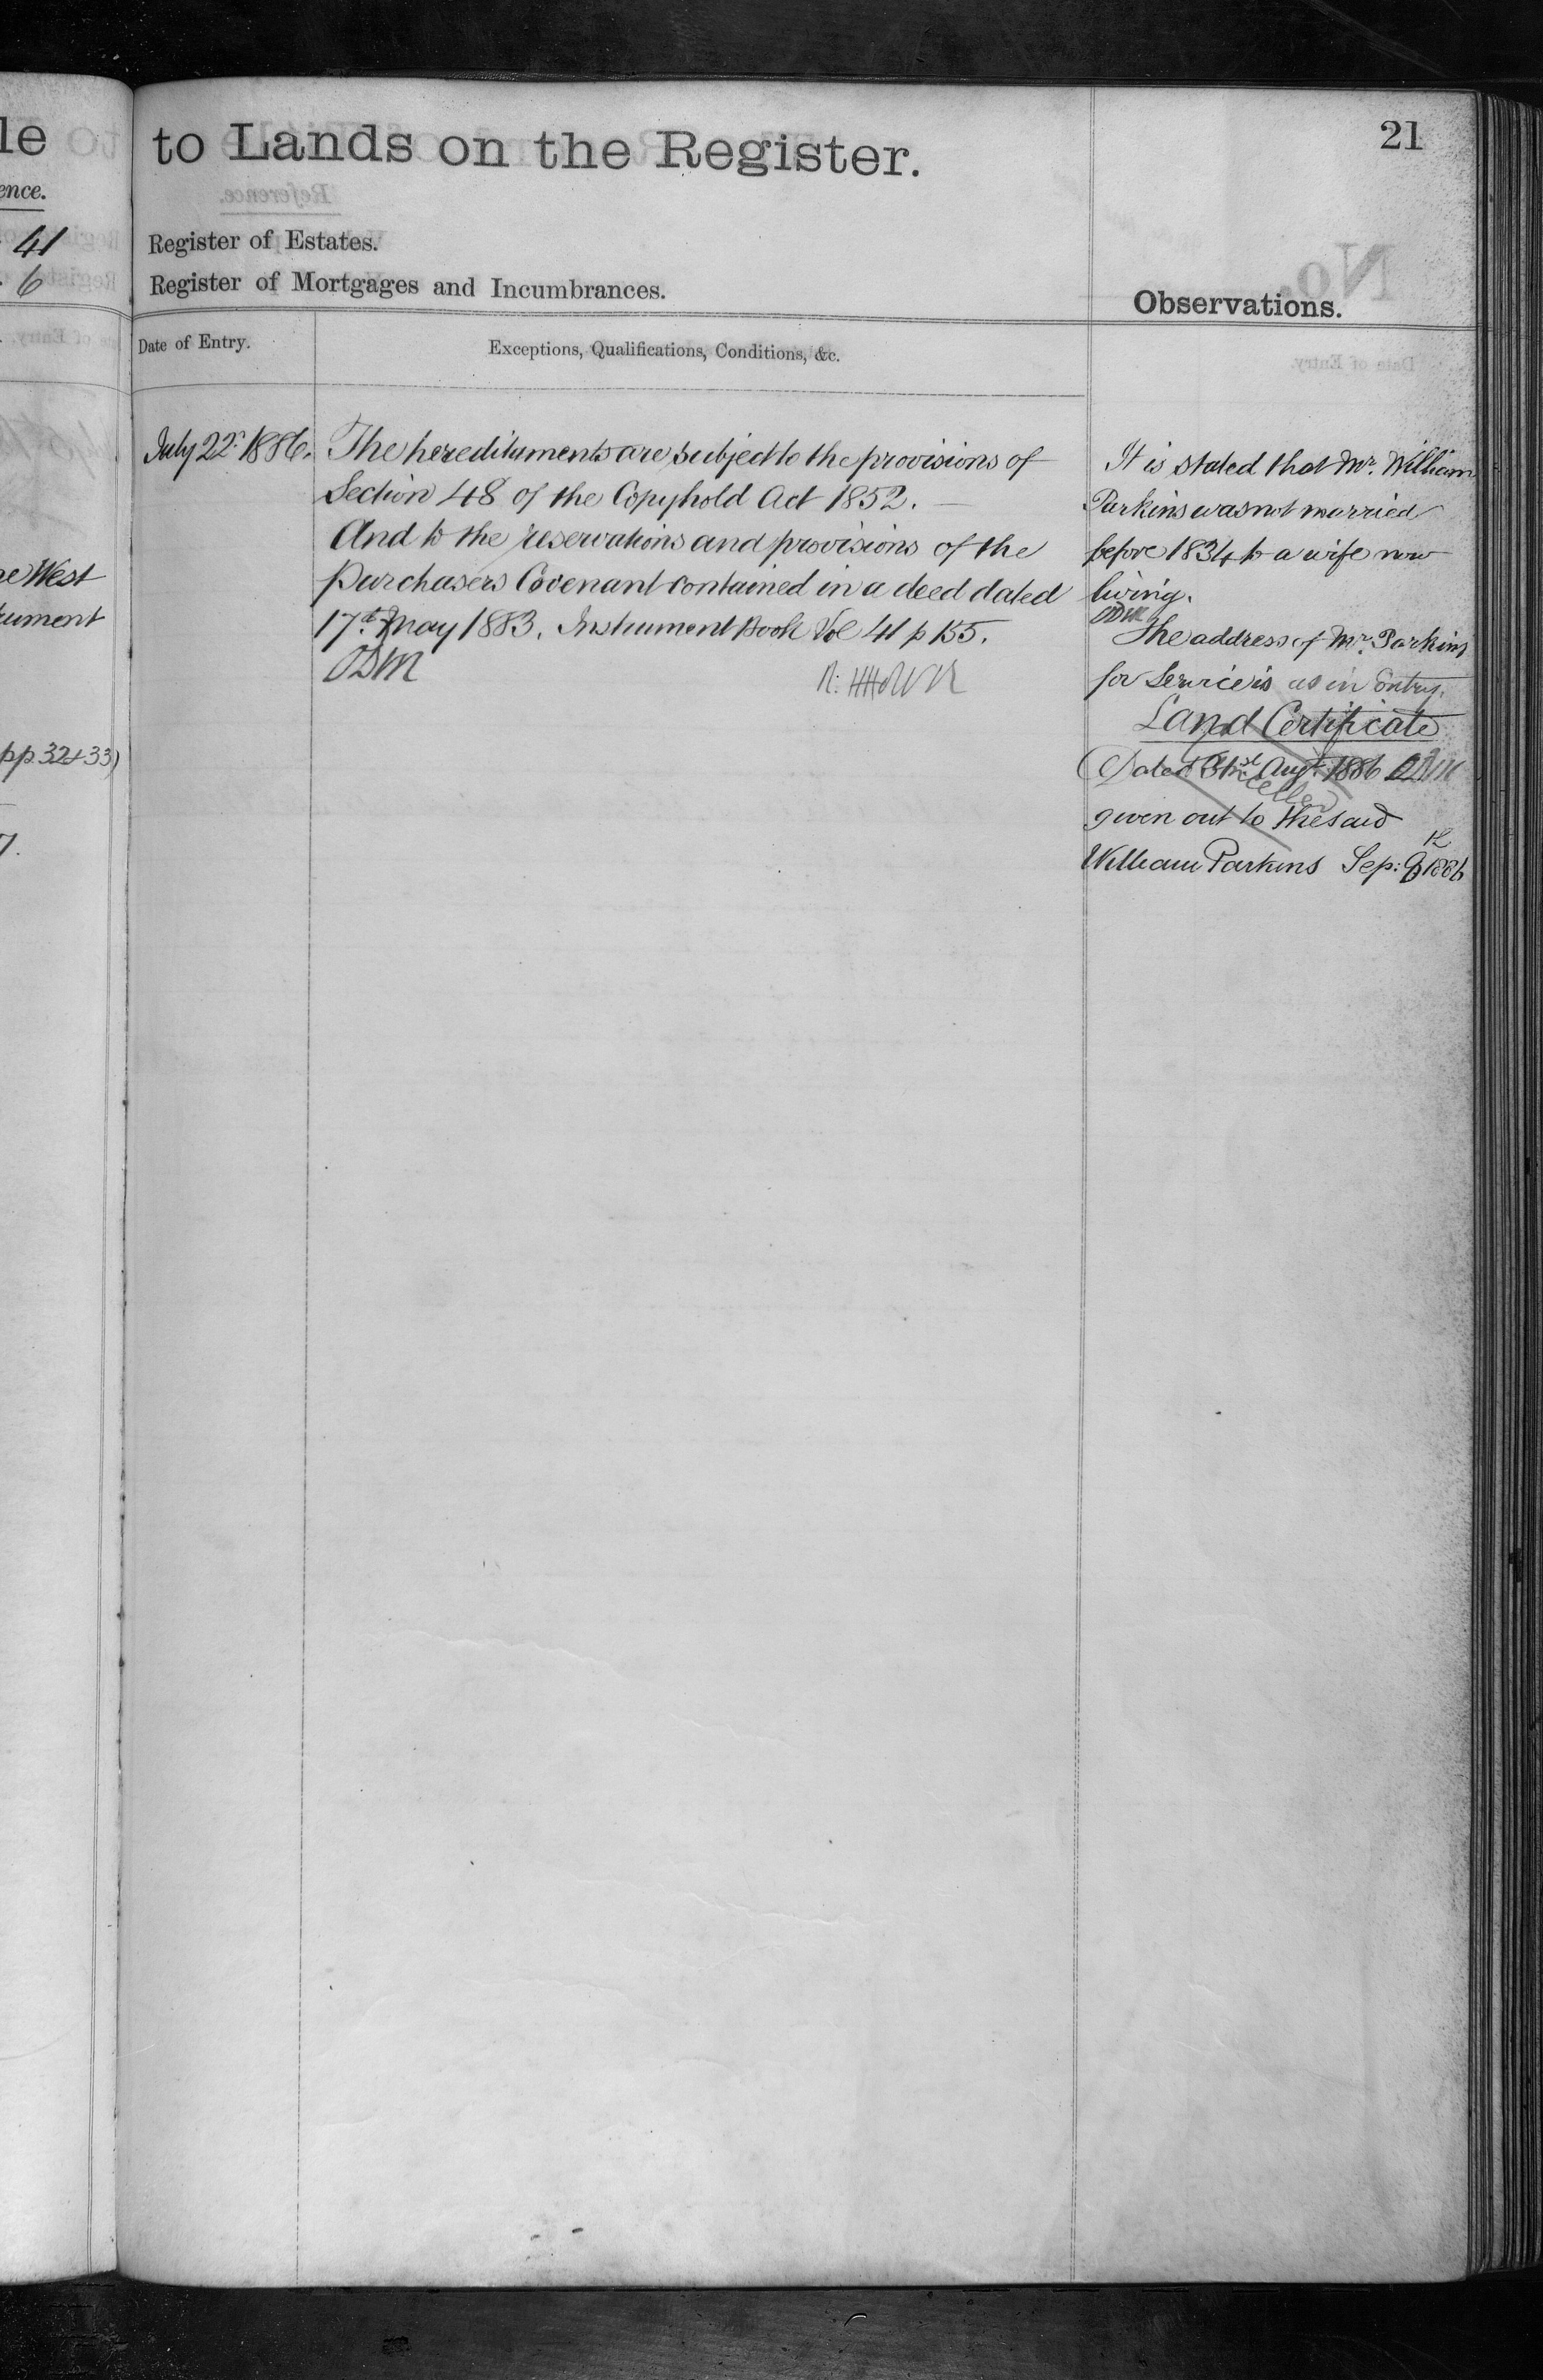 le
ence.
41
6
ne West
ument
pp. 32 & 33)
7.
to Lands on the Register.
21
Register of Estates.
Register of Mortgages and Incumbrances.
Observations.
Date of Entry.
Exceptions, Qualifications, Conditions, &c.
July 22d 1886.
The hereditaments are subject to the provisions of
Section 48 of the Copyhold Act 1852. —
And to the reservations and provisions of the
Purchasers Covenant contained in a deed dated
17th May 1883. Instrument Book Vol 41 p 155.
ODM
It is stated that Mr. William
Parkins was not married
before 1834 to a wife now
living.
ODM
The address of Mr. Parkins
for Service is as in Entry.
Land Certificate
Dated 31st Augt 1886 ODM
Cancelled
given out to the said
William Parkins Sep: 9 1886